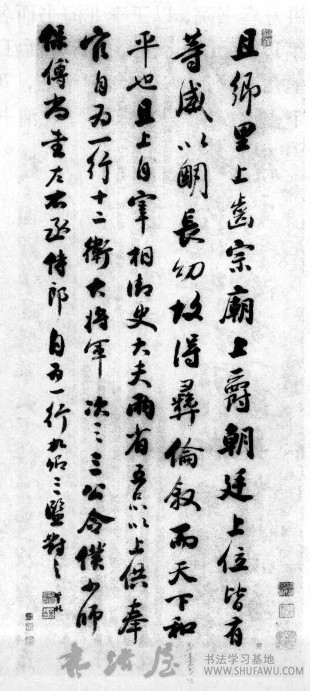 且鄉里上齒宗廟上爵朝廷上位皆有
等威以眀長幼故得彝倫敘而天下和
平也且上自宰相御史大夫兩省五品以上供奉
官自為一行十二衛大將軍次之三公令僕少師
保傅尚書左右丞侍郎自為一行九卿三監對之
书法屋
书法学习基地
www.SHUFAWU.com